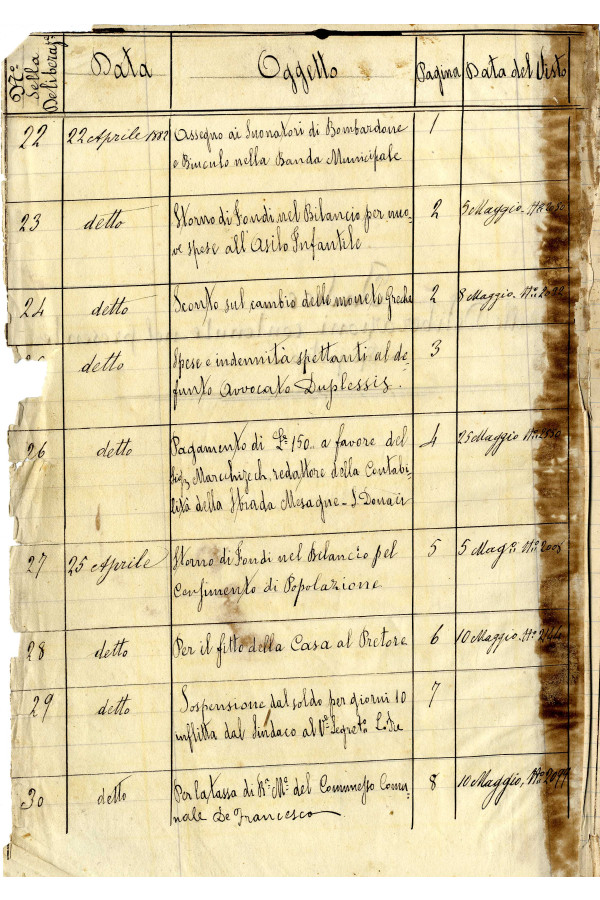 N.º della Deliberaz.e Data Oggetto Pagina Data del Visto
22 22 Aprile 1882 Assegno ai Suonatori di Bombardone 1
e Binculo nella Banda Municipale
23 detto Storno di Fondi nel Bilancio per nuo- 2 5 Maggio. N.º
ve spese all'Asilo Infantile.
24 detto Sconto sul cambio delle monete Greche 2 8 Maggio. N.º
detto Spese e indennità spettanti al de- 3
funto Avvocato Duplessis.
26 detto Pagamento di L.e 150.. a favore del 4 25 Maggio N.º
Sig. Marchizech, redattore della Contabi-
lità della Strada Mesagne-S. Donaci
27 25 Aprile Storno di Fondi nel Bilancio pel 5 5 Mag.o N.º
Censimento di Popolazione
28 detto Per il fitto della Casa al Pretore 6 10 Maggio. N.º
29 detto Sospensione dal soldo per giorni 10 7
inflitta dal Sindaco al V.e Segret.o
30 detto Per la tassa di R.a M.e del Commesso Comu- 8 10 Maggio, N.º 2099
nale De Francesco